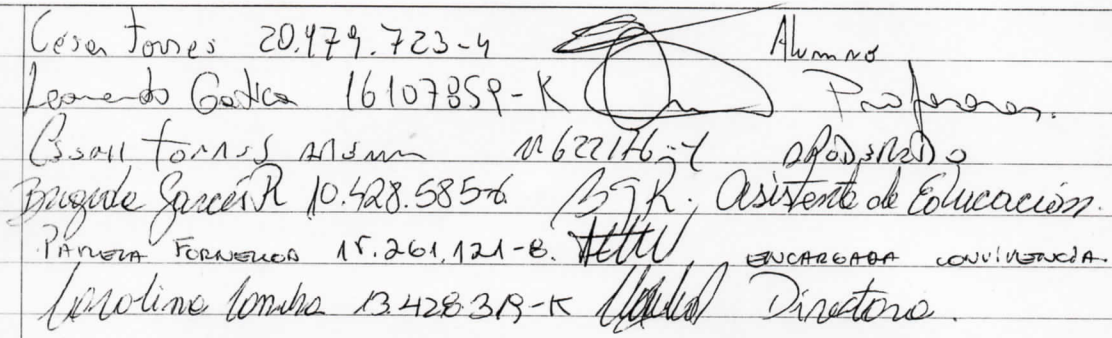 César Torres 20.479.723-4 Alumno
Leonardo Gatica 16107859-K Profesor.
Torres 11622176-4 APODERADO
Brigida Garcés R 10.428.585-6. BGR. Asistente de Educación.
15.261.121-8. ENCARGADA CONVIVENCIA.
Carolina 13.428.319-K Directora.